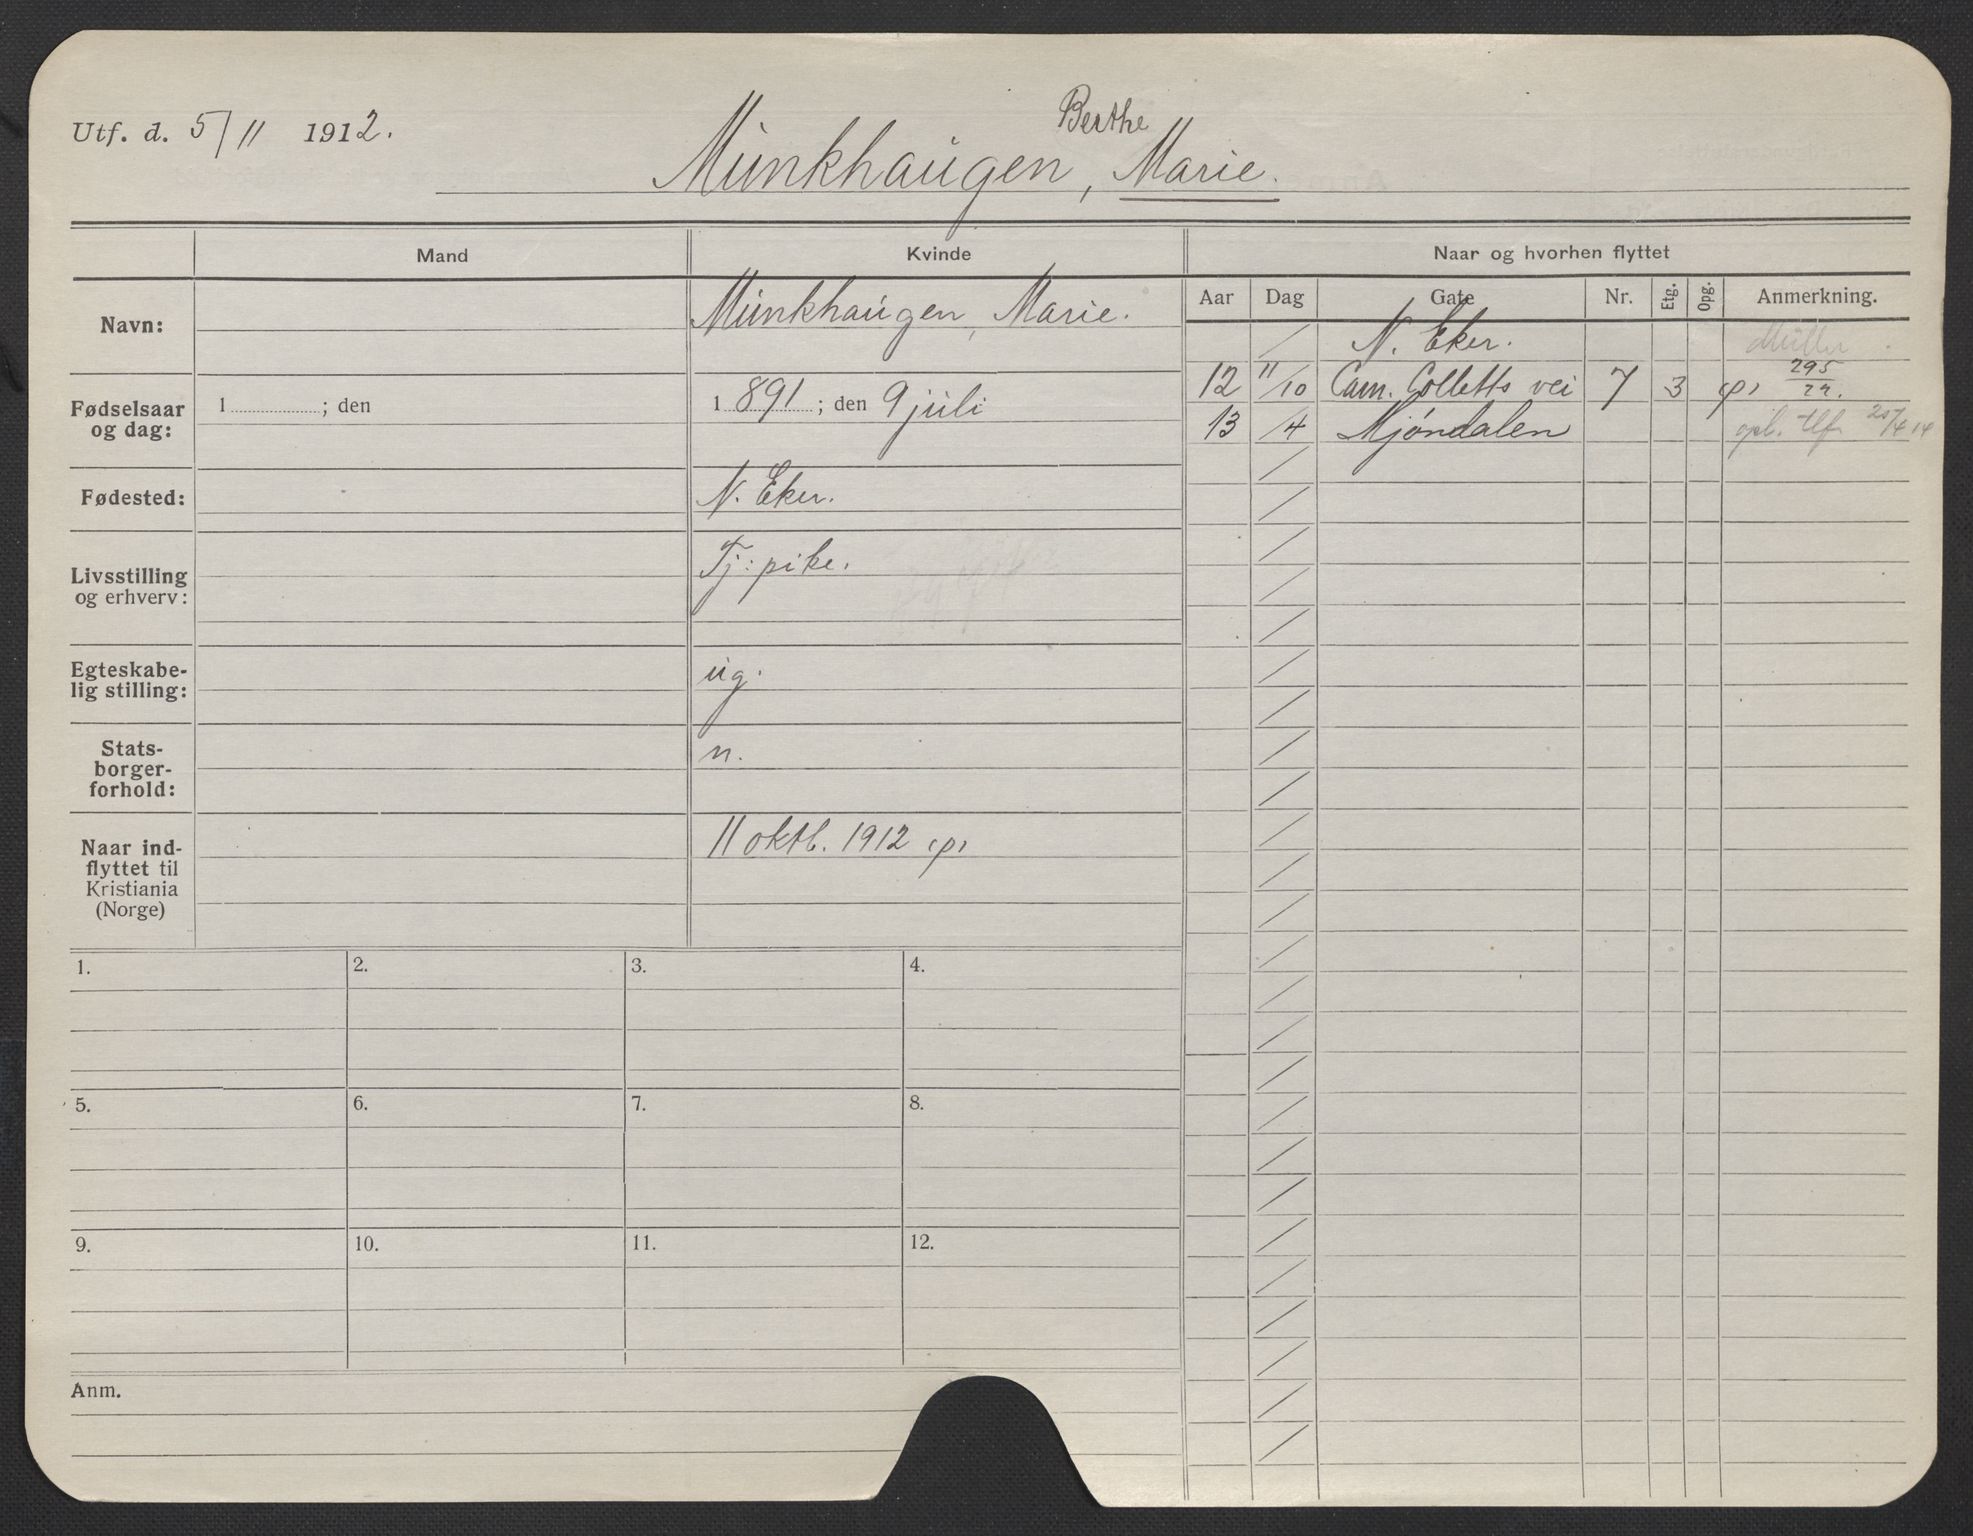 Utf. d. 5/11 1912.
Berthe
Munkhaugen, Marie.
Mand
Kvinde
Naar og hvorhen flyttet
Navn:
Munkhaugen, Marie.
Fødselsaar og dag:
1 ; den
1 891 ; den 9 juli
Fødested:
N. Eker.
Livsstilling og erhverv:
Tj: pike.
Egteskabe-
lig stilling:
ug.
Stats-
borger-
forhold:
n.
Naar ind-
flyttet til
Kristiania
(Norge)
11 oktb. 1912 (p)
Aar Dag Gate Nr. Etg. Opg. Anmerkning.
/ N. Eker. Müller
12 11/10 Cam. Colletts vei 7 3 (p) 295/22.
13 /4 Mjøndalen opl. tlf.
1.
2.
3.
4.
5.
6.
7.
8.
9.
10.
11.
12.
Anm.